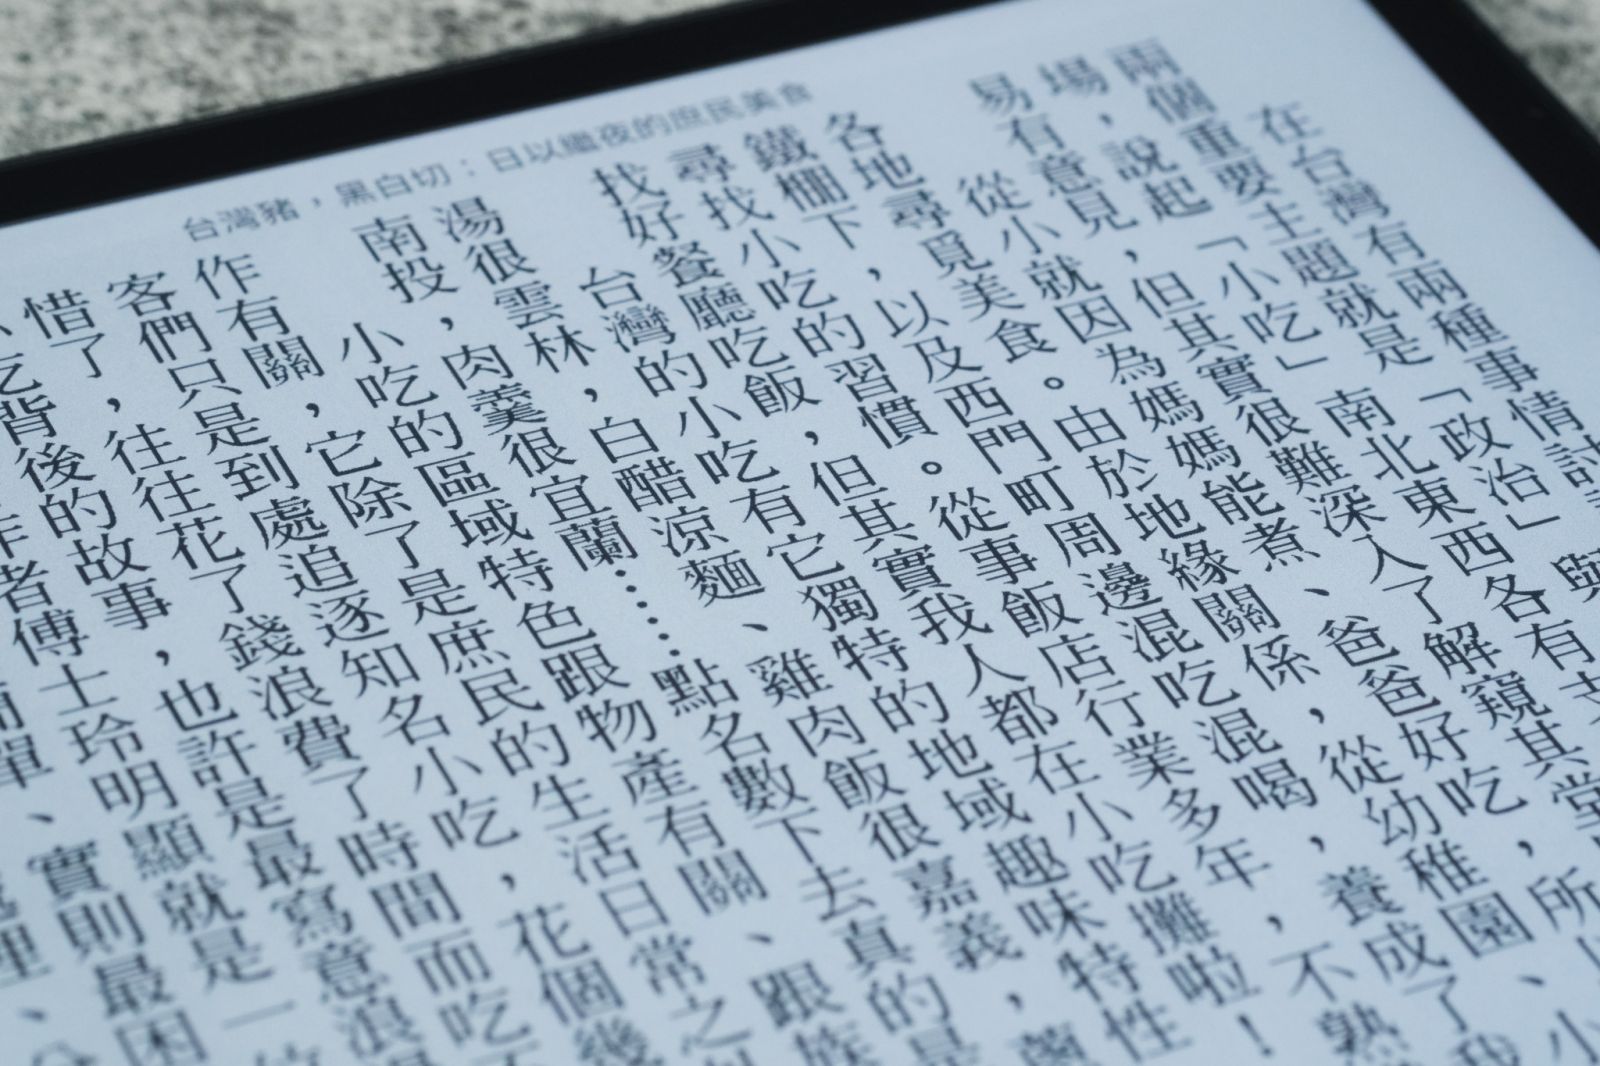 台灣豬，黑白切：日以繼夜的庶民美食
在台灣有兩種事情討
兩個重要主題就是「政治」與
場，說起「小吃」南北東西各有
易有意見，但其實很難深入了解窺其堂
從小就因為媽媽能煮、爸爸好吃，所
各地尋覓美食。由於地緣關係，從幼稚園、小
鐵棚下，以及西門町周邊混吃混喝，養成了我
尋找小吃的習慣。從事飯店行業多年，不熟
找好餐廳吃飯，但其實我人都在小吃攤啦！
台灣的小吃有它獨特的地域趣味特性
湯很雲林，白醋涼麵、雞肉飯很嘉義，
南投，肉羹很宜蘭……點名數下去真的是
小吃的區域特色跟物產有關、跟族
作有關，它除了是庶民的生活日常之
客們只是到處追逐知名小吃，花個幾
惜了，往往花了錢浪費了時間而吃
吃背後的故事，也許是最寫意浪
作者傅士玲明顯就是一
單、實則最困
理、